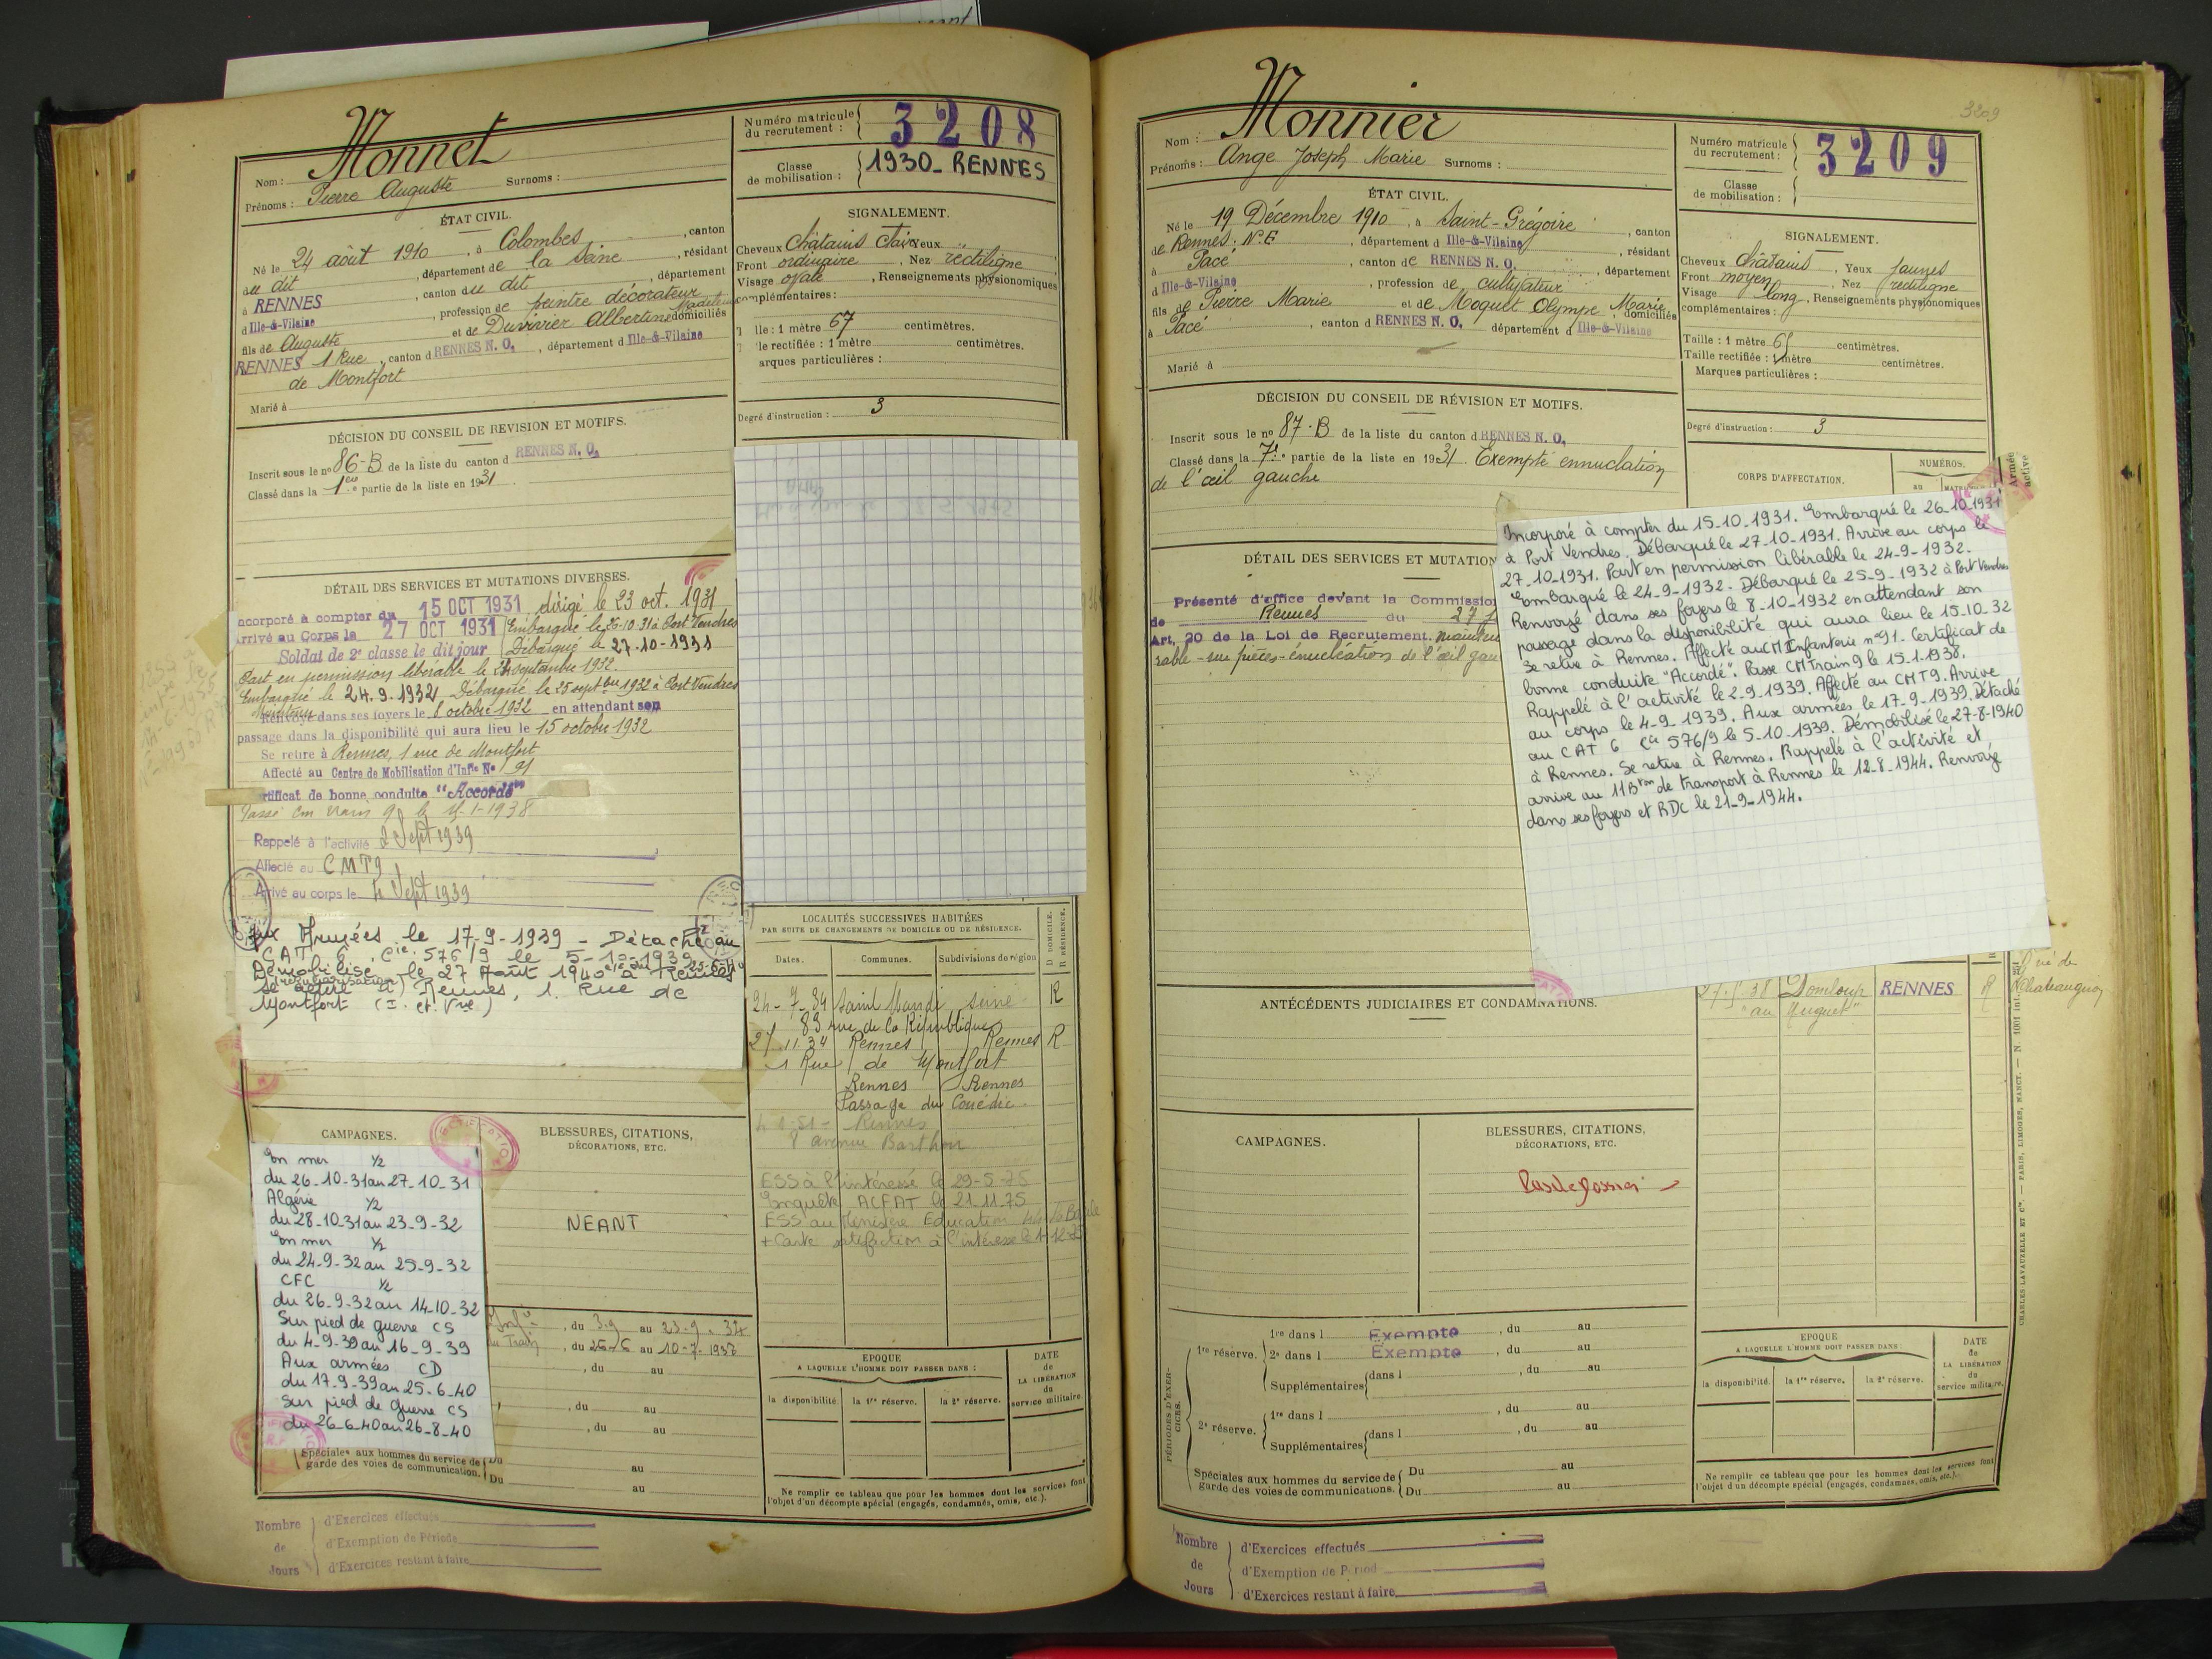 Monnet
Nom :
Prénoms : Pierre Auguste Surnoms :
Numéro matricule du recrutement : 3208
Classe de mobilisation : 1930_ RENNES
ÉTAT CIVIL.
Né le 24 août 1910, à Colombes, canton
au dit, département de la Seine, résidant
à RENNES, canton au dit, département
d Ille-&-Vilaine, profession de peintre décorateur
fils de Auguste et de Duvivier Albertine domiciliés
RENNES 1 Rue, canton d RENNES N. O., département d Ille-&-Vilaine
de Montfort
Marié à
SIGNALEMENT.
Cheveux Châtains clair Yeux "
Front ordinaire, Nez rectiligne
Visage ovale, Renseignements physionomiques
complémentaires :
lle : 1 mètre 67 centimètres.
le rectifiée : 1 mètre centimètres.
arques particulières :
Degré d'instruction : 3
DÉCISION DU CONSEIL DE REVISION ET MOTIFS.
Inscrit sous le no 86-B de la liste du canton d RENNES N. O.
Classé dans la 1ère partie de la liste en 1931
DÉTAIL DES SERVICES ET MUTATIONS DIVERSES.
ncorporé à compter du 15 OCT 1931 dirigé le 23 oct. 1931
Arrivé au Corps le 27 OCT 1931 Embarqué le 26-10-31 à Port Vendres
Soldat de 2e classe le dit jour Débarqué le 27-10-1931
Part en permission libérable le 24 septembre 1932.
Embarqué le 24.9.1932 Débarqué le 25 septbre 1932 à Port Vendres
Renvoyé dans ses foyers le 8 octobre 1932 en attendant son
passage dans la disponibilité qui aura lieu le 15 octobre 1932
Se retire à Rennes, 1 rue de Montfort
Affecté au Centre de Mobilisation d'Infie No 91
rtificat de bonne conduite "Accordé"
Passé Cm train 9 le 15-1-1938
Rappelé à l'activité 2 Sept 1939
Affecté au CMT9
Arrivé au corps le 4 Sept 1939
Aux Armées le 17-9-1939 - Détaché au
CAT 6, Cie 576/9 le 5-10-1939
Démobilisé le 27 Août 1940 à Rennes
se retire à Rennes, 1. Rue de
Montfort (I. et Vne.)
LOCALITÉS SUCCESSIVES HABITÉES
PAR SUITE DE CHANGEMENTS DE DOMICILE OU DE RÉSIDENCE.
D DOMICILE. R RÉSIDENCE.
Dates. Communes. Subdivisions de région
24-7-34 Saint Mandé Seine R
83 rue de la République
27.11.34 Rennes Rennes R
1 Rue de Montfort
Rennes Rennes
Passage du Couédic
Rennes
8 avenue Barthou
ESS à l'intéressé le 29-5-75
Enquête ACFAT le 21.11.75
ESS au Ministère Education
+ Carte satisfaction à l'intéressé le
CAMPAGNES.
En mer 1/2
du 26-10-31 au 27-10-31
Algérie 1/2
du 28-10-31 au 23-9-32
En mer 1/2
du 24-9-32 au 25-9-32
CFC 1/2
du 26-9-32 au 14-10-32
Sur pied de guerre CS
du 4-9-39 au 16-9-39
Aux armées CD
du 17-9-39 au 25-6-40
Sur pied de guerre CS
du 26-6-40 au 26-8-40
BLESSURES, CITATIONS,
DÉCORATIONS, ETC.
NEANT
, du 3.9 au 23-9-34
du Train, du 26-6 au 10-7-1938
, du au
, du au
, du au
Spéciales aux hommes du service de garde des voies de communication. Du au
Du au
EPOQUE
A LAQUELLE L'HOMME DOIT PASSER DANS :
la disponibilité. la 1re réserve. la 2e réserve.
DATE de LA LIBÉRATION du service militaire.
Ne remplir ce tableau que pour les hommes dont les services font
l'objet d'un décompte spécial (engagés, condamnés, omis, etc.).
Nombre de Jours
d'Exercices effectués
d'Exemption de Période
d'Exercices restant à faire
3209
Nom : Monnier
Prénoms : Ange Joseph Marie Surnoms :
Numéro matricule du recrutement : 3209
Classe de mobilisation :
ÉTAT CIVIL.
Né le 19 Décembre 1910, à Saint-Grégoire, canton
de Rennes. N.E, département d Ille-&-Vilaine, résidant
à Pacé, canton de RENNES N. O., département
d Ille-&-Vilaine, profession de cultivateur
fils de Pierre Marie et de Moquet Olympe Marie, domiciliés
à Pacé, canton d RENNES N. O. département d Ille-&-Vilaine
Marié à
SIGNALEMENT.
Cheveux châtains, Yeux jaunes
Front moyen, Nez rectiligne
Visage long, Renseignements physionomiques
complémentaires :
Taille : 1 mètre 65 centimètres.
Taille rectifiée : 1 mètre centimètres.
Marques particulières :
Degré d'instruction : 3
DÉCISION DU CONSEIL DE RÉVISION ET MOTIFS.
Inscrit sous le no 87-B de la liste du canton d RENNES N. O.
Classé dans la 7e partie de la liste en 1931. Exempté ennuclation
de l'œil gauche
CORPS D'AFFECTATION. NUMÉROS.
Armée active
DÉTAIL DES SERVICES ET MUTATION
Présenté d'office devant la Commissio
de Rennes du 27
Art, 20 de la Loi de Recrutement.
sable - sur pièces - énucléation de l'œil gau
Incorporé à compter du 15-10-1931. Embarqué le 26-10-1931
à Port Vendres. Débarqué le 27-10-1931. Arrive au corps le
27-10-1931. Part en permission libérable le 24-9-1932.
Embarqué le 24-9-1932. Débarqué le 25-9-1932 à Port Vendres
Renvoyé dans ses foyers le 8-10-1932 en attendant son
passage dans la disponibilité qui aura lieu le 15-10-32
Se retire à Rennes. Affecté au CM Infanterie n°91. Certificat de
bonne conduite "Accordé". Passe CM Train 9 le 15.1.1938.
Rappelé à l'activité le 2-9-1939. Affecté au CMT9. Arrive
au corps le 4-9-1939. Aux armées le 17-9-1939. Détaché
au CAT 6 Cie 576/9 le 5-10-1939. Démobilisé le 27-8-1940
à Rennes. Se retire à Rennes. Rappelé à l'activité et
arrive au 11Bton de transport à Rennes le 12-8-1944. Renvoyé
dans ses foyers et RDC le 21-9-1944.
ANTÉCÉDENTS JUDICIAIRES ET CONDAMNATIONS.
Domloup RENNES R
"au Muguet"
CAMPAGNES.
BLESSURES, CITATIONS,
DÉCORATIONS, ETC.
Pas de dossier
PÉRIODES D'EXERCICES.
1re réserve. 1re dans l Exempte, du au
2e dans l Exempte, du au
Supplémentaires dans l, du au
2e réserve. 1re dans l, du au
Supplémentaires dans l, du au
Spéciales aux hommes du service de garde des voies de communications. Du au
Du au
EPOQUE
A LAQUELLE L'HOMME DOIT PASSER DANS :
la disponibilité. la 1re réserve. la 2e réserve.
DATE de LA LIBÉRATION du service militaire.
Ne remplir ce tableau que pour les hommes dont les services font
l'objet d'un décompte spécial (engagés, condamnés, omis, etc.).
CHARLES-LAVAUZELLE ET Cie. — PARIS, LIMOGES, NANCY. — N. 1001 int.
Nombre de Jours
d'Exercices effectués
d'Exemption de Period
d'Exercices restant à faire